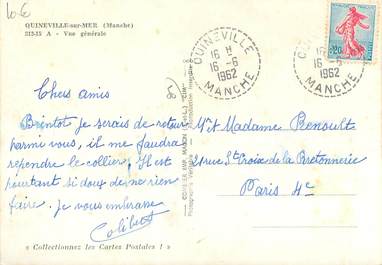 10 €
QUINEVILLE-sur-MER (Manche)
315-15 A - Vue générale
QUINEVILLE
16 H
16 - 6
1962
MANCHE
QUINEVILLE
16 H
16 - 6
1962
MANCHE
0,20
Chers amis
Bientôt je serais de retour
parmi vous, il me faudra
reprendre le collier. Il est
pourtant si doux de ne rien
faire. Je vous embrasse
Colibert
Mr et Madame Renoult
24 rue Ste Croix de la Bretonnerie
Paris 4e
« Collectionnez les Cartes Postales ! »